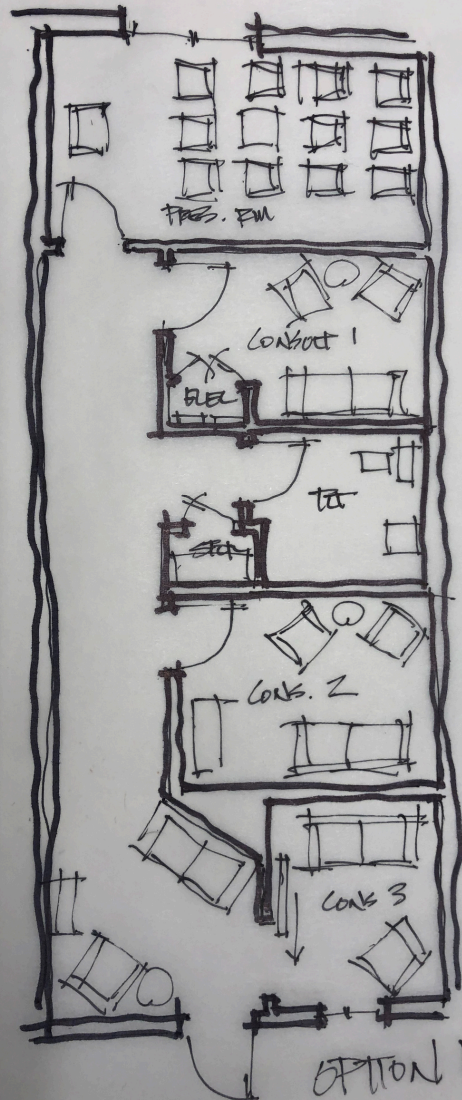 PRES. RM
CONSULT 1
ELEC
TLT
CONS. 2
CONS 3
OPTION 1